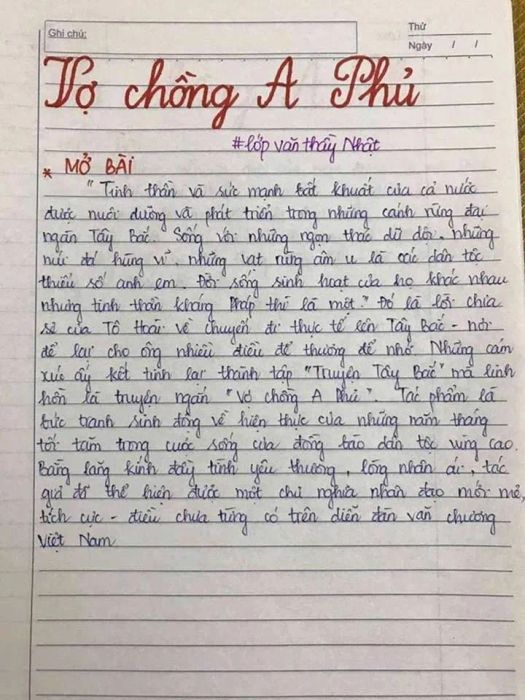 Ghi chú:
Thứ
Ngày / /
Vợ chồng A Phủ
#lớp văn thầy Nhật
* MỞ BÀI
"Tinh thần và sức mạnh bất khuất của cả nước
được nuôi dưỡng và phát triển trong những cánh rừng đại
ngàn Tây Bắc. Sống với những ngọn thác dữ dội, những
núi đá hùng vĩ, những vạt rừng âm u là các dân tộc
thiểu số anh em. Đời sống sinh hoạt của họ khác nhau
nhưng tinh thần kháng Pháp thì là một." Đó là lời chia
sẻ của Tô Hoài về chuyến đi thực tế lên Tây Bắc - nơi
để lại cho ông nhiều điều để thương để nhớ. Những cảm
xúc ấy kết tinh lại thành tập "Truyện Tây Bắc" mà linh
hồn là truyện ngắn "Vợ chồng A Phủ". Tác phẩm là
bức tranh sinh động về hiện thực của những năm tháng
tối tăm trong cuộc sống của đồng bào dân tộc vùng cao.
Bằng lăng kính đầy tình yêu thương, lòng nhân ái, tác
giả đã thể hiện được một chủ nghĩa nhân đạo mới mẻ,
tích cực - điều chưa từng có trên diễn đàn văn chương
Việt Nam